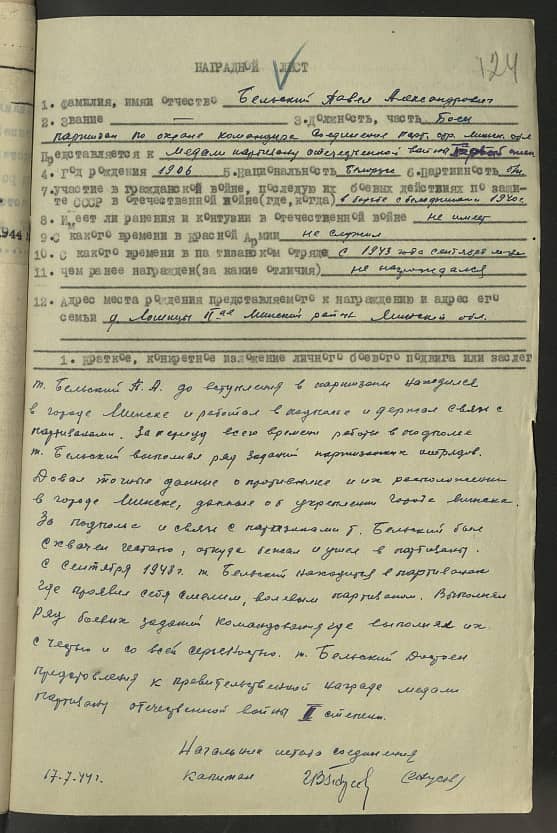 124
НАГРАДНОЙ ЛИСТ
1. Фамилия, имяи отчество Бельский Павел Александрович
2. Звание — 3. Должность, часть Боец
партизан по охране командира Соединения парт. отр. Минск. обл
Представляется к медали партизану отечественной войны степ.
4. Год рождения 1906 5. Национальность белорус 6. Партийность б/п.
7. участие в гражданской войне, последую их боевых действиях по защи-
те СССР в отечественной войне(где, когда)
8. И ет ли ранения и контузии в отечественной войне не имеет
9. С какого времени в Красной Армии не служил
10. С какого времени в па тизанском отряде с 1943 года сентябрь
11. чем ранее награжден(за какие отличия) не награждался
12. Адрес места рождения представляемого к награждению и адрес его
семьи д. Лошицы II ая Минский район Минской обл.
1. Краткое, конкретное изложение личного боевого подвига или заслуг
т. Бельский П. А. до вступления в партизаны находился
в городе Минске и работал в подполье и держал связь с
партизанами. За период всего времени работы в подполье
т. Бельский выполнял ряд заданий партизанских отрядов.
Довал точные данные о противнике и их расположении
в городе Минске, данные об укреплении города Минска.
За подполье и связь с партизанами т. Бельский был
схвачен гестапо, откуда бежал и ушел в партизаны.
С сентября 1943 г. т. Бельский находится в партизанах
где проявил себя смелым, волевым партизаном. Выполнял
ряд боевых заданий командования где выполнял их
с честью и со всей серьезностью. т. Бельский Достоен
представления к правительственной награде медали
партизану отечественной войны II степени.
Начальник штаба соединения
17.7.44 г. капитан
1944